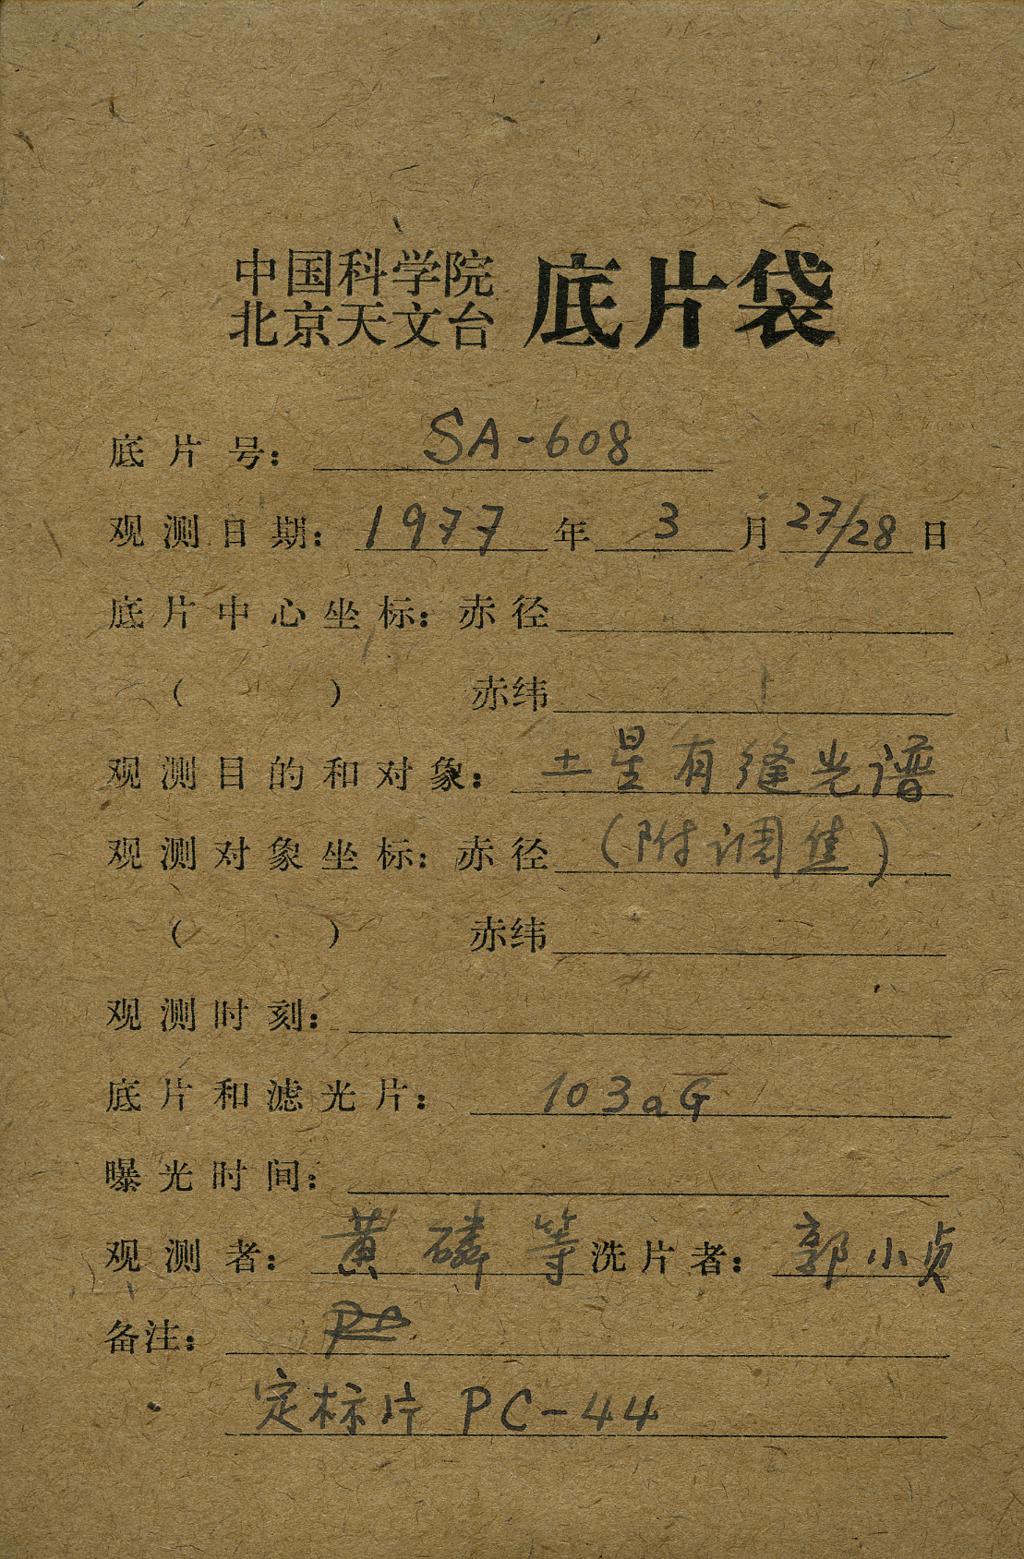 中国科学院
北京天文台 底片袋
底片号: SA-608
观测日期: 1977年3月27/28日
底片中心坐标: 赤径
( ) 赤纬
观测目的和对象: 土星有缝光谱
观测对象坐标: 赤径 (附调焦)
( ) 赤纬
观测时刻:
底片和滤光片: 103aG
曝光时间:
观测者: 黄磷等 洗片者: 郭小贞
备注:
定标片 PC-44